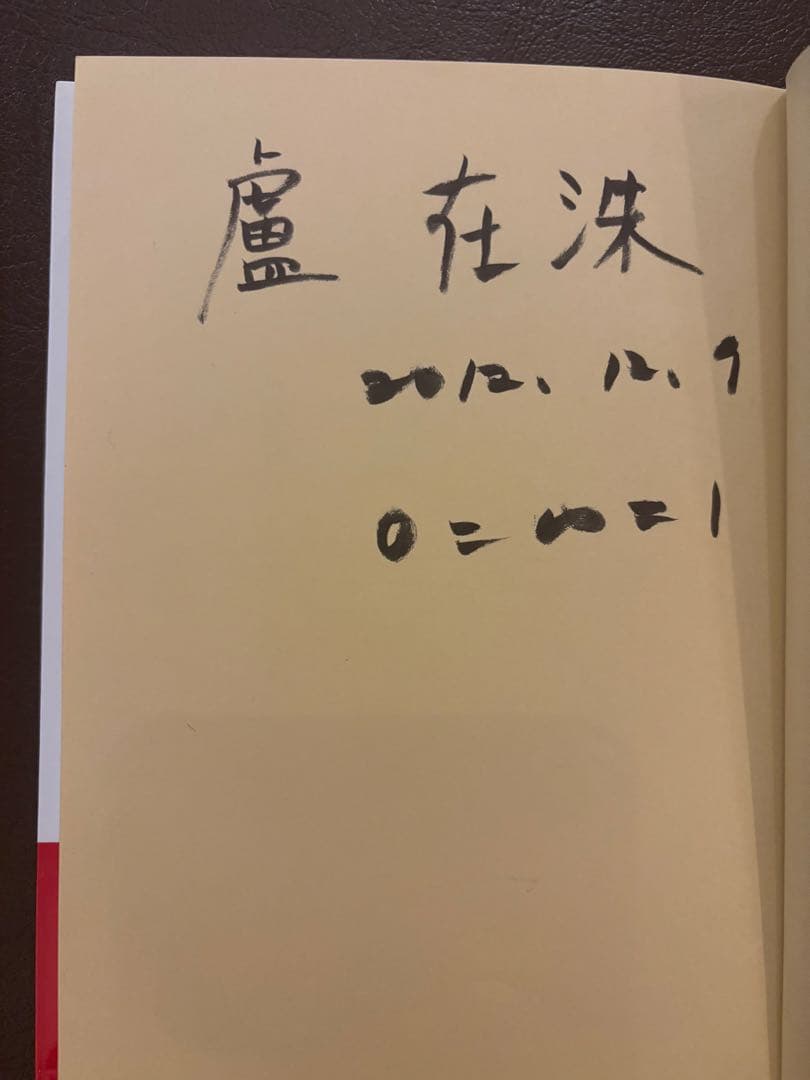 盧 在洙
2012. 12. 9
0 = ∞ = 1